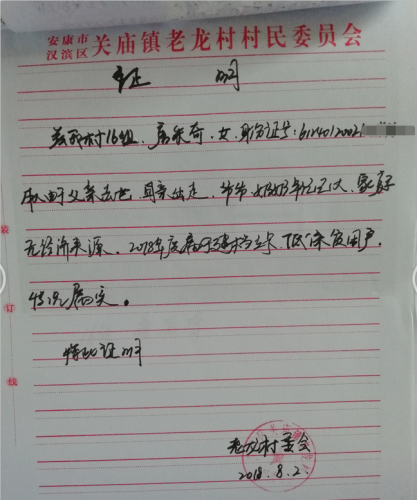 安康市
汉滨区 关庙镇老龙村村民委员会
证 明
兹有我村16组，奇，女，身份证号：6124012002
因父亲去世，母亲出走，爷爷奶奶年过七旬，家庭
无经济来源，2018年度属于建档立卡，低保贫困户，
情况属实。
特此证明
老龙村委会
2018.8.2
装
订
线